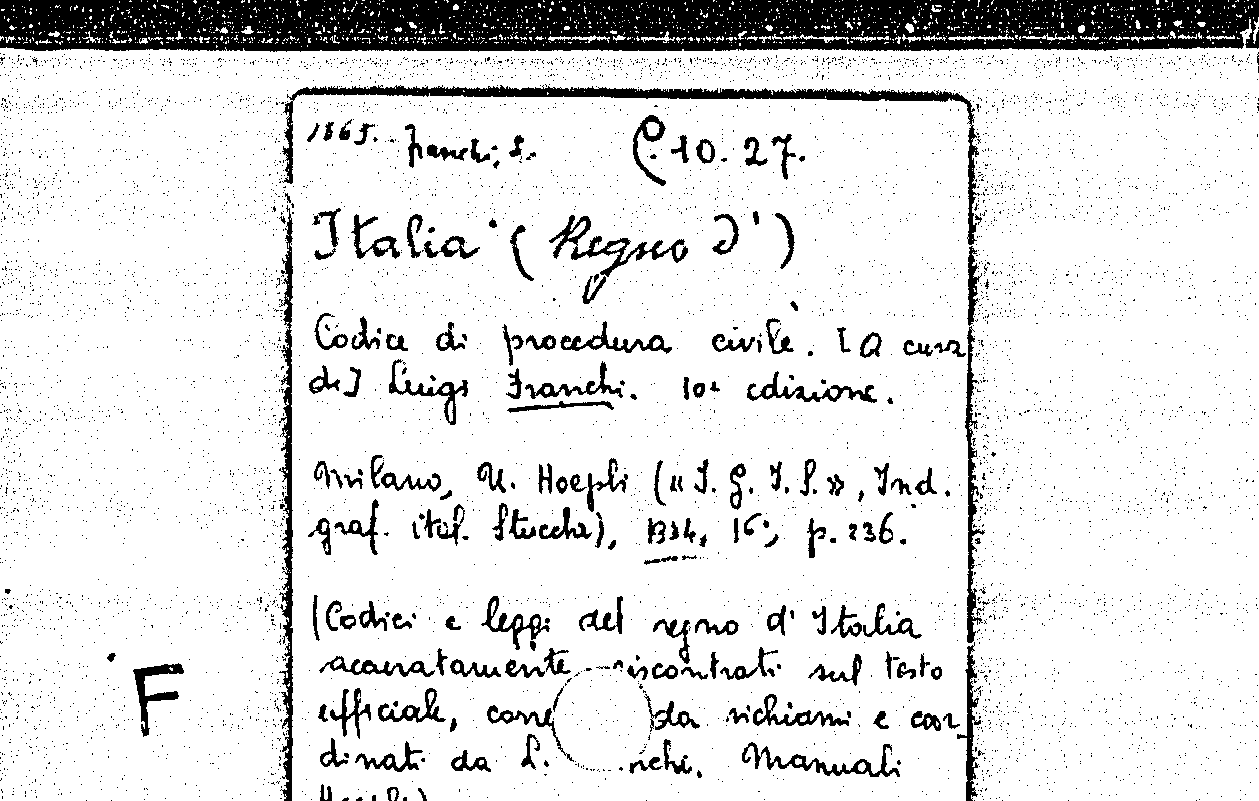 1865. Franchi, L. C. 10. 27.
Italia (Regno d')
Codice di procedura civile. [A cura
di] Luigi Franchi. 10a edizione.
Milano, U. Hoepli (« I. G. I. S. », Ind.
graf. ital. Stucchi), 1934, 16°, p. 236.
(Codici e leggi del regno d'Italia
accuratamente riscontrati sul testo
ufficiale, corre da richiami e coor-
dinati da L. nchi. Manuali
Hoepli)
F